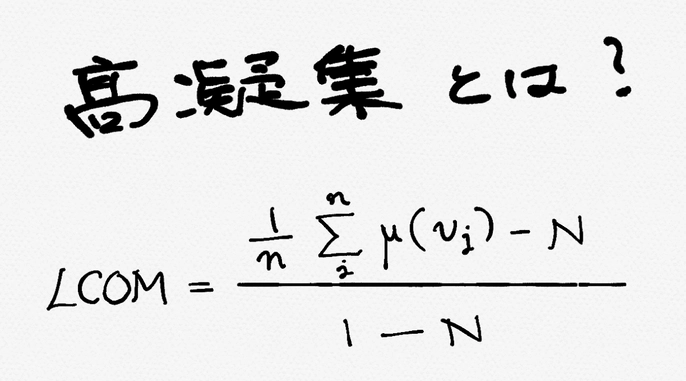 高凝集とは?
LCOM = \frac{\frac{1}{n} \sum_{j}^{n} μ(v_j) - N}{1 - N}